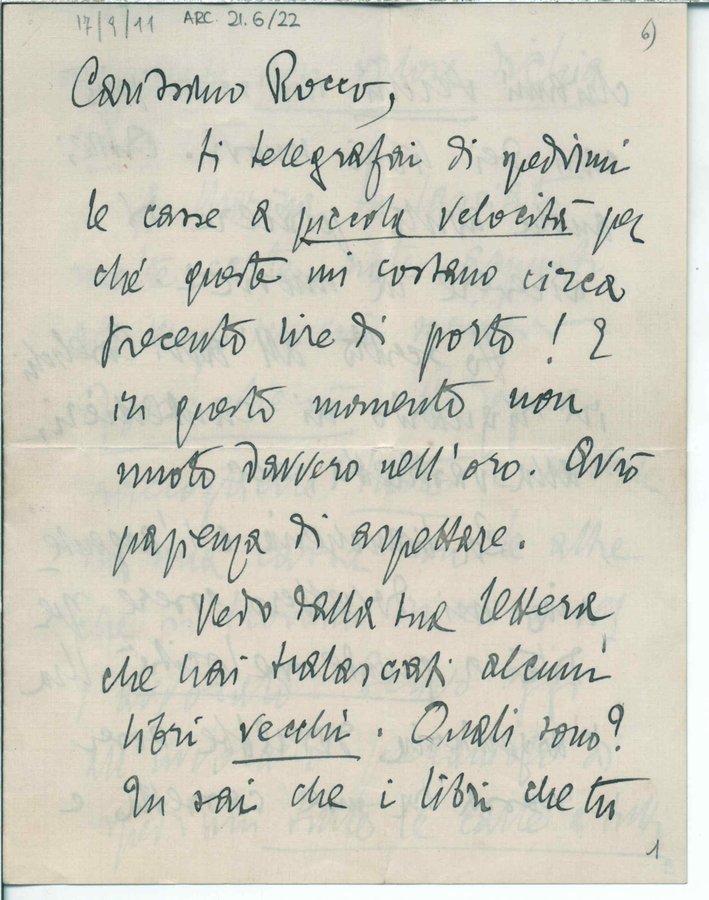 17/9/11 ARC. 21.6/22
6)
Carissimo Rocco,
ti telegrafai di spedirmi
le casse a piccola velocità per
ché queste mi costano circa
trecento lire di porto! E
in questo momento non
nuoto davvero nell'oro. Avrò
pazienza di aspettare.
Vedo dalla tua lettera
che hai tralasciati alcuni
libri vecchi. Quali sono?
Tu sai che i libri che tu
1